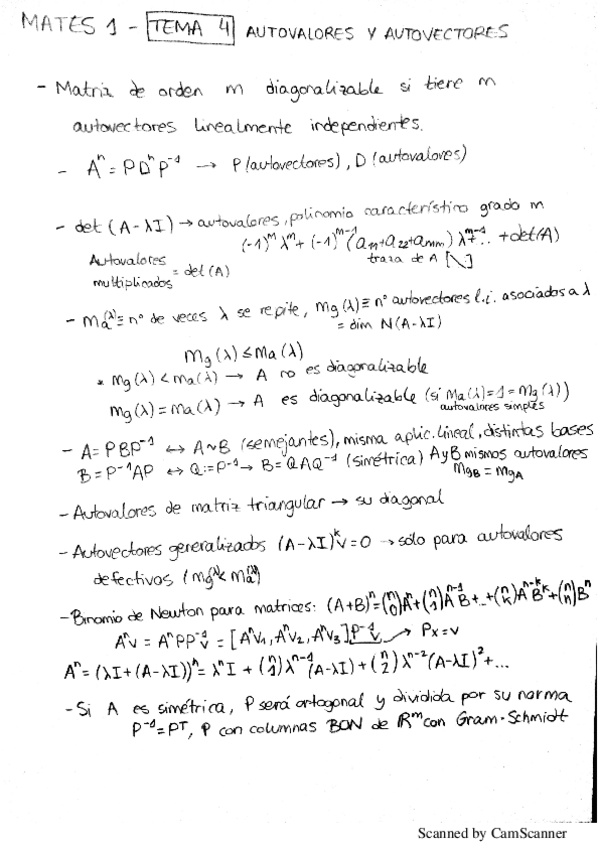 MATES 1 - TEMA 4 AUTOVALORES Y AUTOVECTORES
- Matriz de orden m diagonalizable si tiene m
autovectores linealmente independientes.
- Aⁿ = PDⁿP⁻¹ → P (autovectores), D (autovalores)
- det (A-λI) → autovalores, polinomio característico grado m
(-1)ᵐ λᵐ + (-1)ᵐ⁻¹ (a₁₁+a₂₂+aₘₘ) λᵐ⁻¹+.. + det(A)
Autovalores multiplicados = det (A)
traza de A [\]
- Ma(λ) ≡ nº de veces λ se repite, Mg(λ) ≡ nº autovectores l.i. asociados a λ
= dim N(A-λI)
Mg(λ) ≤ Ma(λ)
* Mg(λ) < Ma(λ) → A no es diagonalizable
Mg(λ) = Ma(λ) → A es diagonalizable (si Ma(λ)=1=Mg(λ))
autovalores simples
- A = PBP⁻¹ ↔ A~B (semejantes), misma aplic. lineal, distintas bases
B = P⁻¹AP ↔ Q:=P⁻¹ → B = QAQ⁻¹ (simétrica) A y B mismos autovalores
MgB = MgA
- Autovalores de matriz triangular → su diagonal
- Autovectores generalizados (A-λI)ᵏv=0 → sólo para autovalores
defectivos (Mg(λ)<Ma(λ))
- Binomio de Newton para matrices: (A+B)ⁿ = (n 0)Aⁿ + (n 1)Aⁿ⁻¹B + .. + (n k)Aⁿ⁻ᵏBᵏ + (n n)Bⁿ
Aⁿv = AⁿPP⁻¹v = [Aⁿv₁, Aⁿv₂, Aⁿv₃] P⁻¹v → Px=v
Aⁿ = (λI + (A-λI))ⁿ = λⁿI + (n 1)λⁿ⁻¹(A-λI) + (n 2)λⁿ⁻²(A-λI)² + ...
- Si A es simétrica, P será ortogonal y dividida por su norma
P⁻¹ = PT, P con columnas BON de ℝᵐ con Gram-Schmidt
Scanned by CamScanner